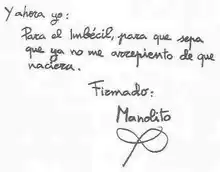 Y ahora yo:
Para el Imbécil, para que sepa
que ya no me arrepiento de que
naciera.
Firmado:
Manolito